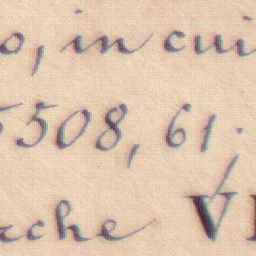 o, in cui
5508, 61.
rche VI